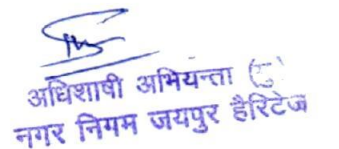 अधिशाषी अभियन्ता
नगर निगम जयपुर हैरिटेज